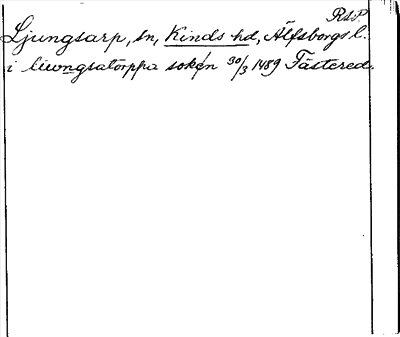 RAP.
Ljungsarp, sn, Kinds hd, Älfsborgs l.
i liwngsatorppa soken 30/3 1489 Fästered.